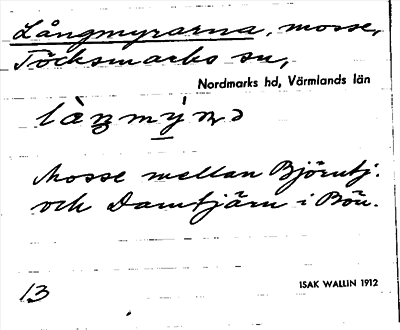 Långmyrarna, mosse,
Töcksmarks sn,
Nordmarks hd, Värmlands län
Mosse mellan Björntj.
och Damtjärn i Bön.
13
ISAK WALLIN 1912